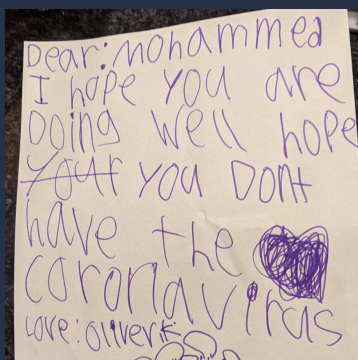 Dear: Mohammed
I hope you are
Doing well hope
your you Dont
have the
coronavirus
Love: Oliver K